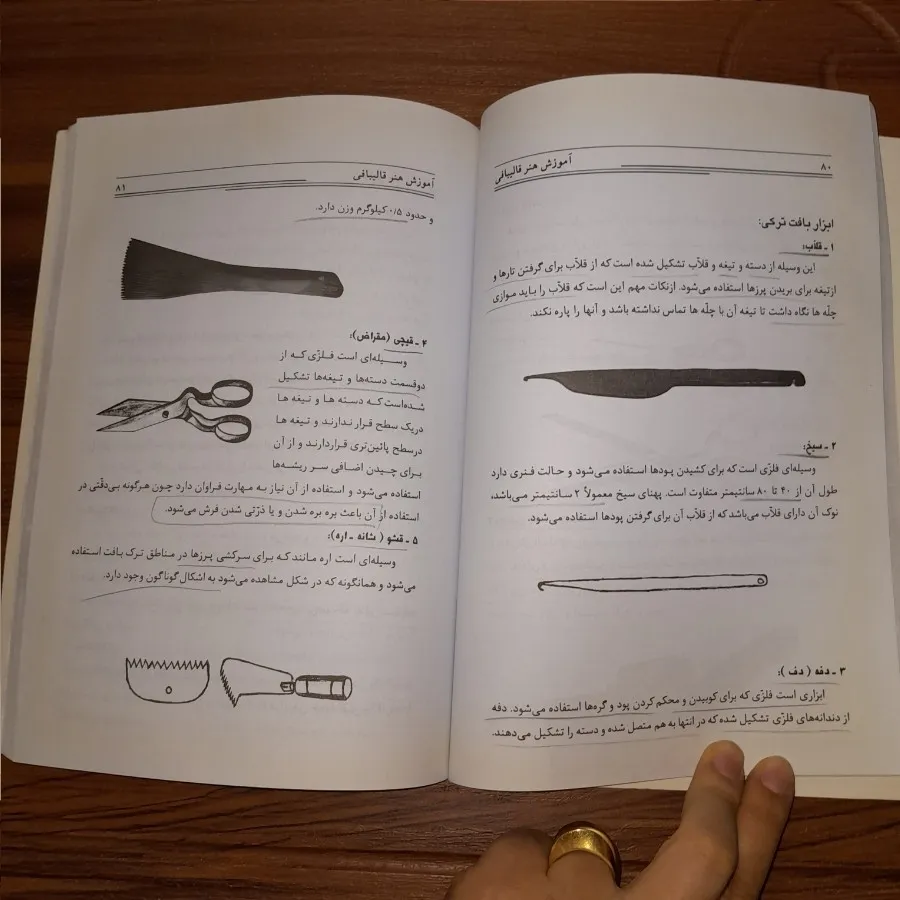 ۸۰
آموزش هنر قالیبافی
ابزار بافت ترکی:
۱ ـ قلاّب:
این وسیله از دسته و تیغه و قلاّب تشکیل شده است که از قلاّب برای گرفتن تارها و
ازتیغه برای بریدن پرزها استفاده می‌شود. ازنکات مهم این است که قلاّب را باید موازی
چلّه ها نگاه داشت تا تیغه آن با چلّه ها تماس نداشته باشد و آنها را پاره نکند.
۲ ـ سیخ:
وسیله‌ای فلزّی است که برای کشیدن پودها استفاده می‌شود و حالت فنری دارد
طول آن از ۴۰ تا ۸۰ سانتیمتر متفاوت است. پهنای سیخ معمولاً ۲ سانتیمتر می‌باشد،
نوک آن دارای قلاّب می‌باشد که از قلاّب آن برای گرفتن پودها استفاده می‌شود.
۳ ـ دفه ( دف ):
ابزاری است فلزّی که برای کوبیدن و محکم کردن پود و گره‌ها استفاده می‌شود. دفه
از دندانه‌های فلزّی تشکیل شده که در انتها به هم متصل شده و دسته را تشکیل می‌دهند.
آموزش هنر قالیبافی
۸۱
و حدود ۰/۵ کیلوگرم وزن دارد.
۴ ـ قیچی (مقراض):
وسیله‌ای است فلزّی که از
دوقسمت دسته‌ها و تیغه‌ها تشکیل
شده‌است که دسته ها و تیغه ها
دریک سطح قرار ندارند و تیغه ها
درسطح پائین‌تری قراردارند و از آن
برای چیدن اضافی سر ریشه‌ها
استفاده می‌شود و استفاده از آن نیاز به مهارت فراوان دارد چون هرگونه بی‌دقّتی در
استفاده از آن باعث بره بره شدن و یا ذرّتی شدن فرش می‌شود.
۵ ـ قشو ( شانه ـ اره):
وسیله‌ای است اره مانند که برای سرکشی پرزها در مناطق ترک بافت استفاده
می‌شود و همانگونه که در شکل مشاهده می‌شود به اشکال گوناگون وجود دارد.